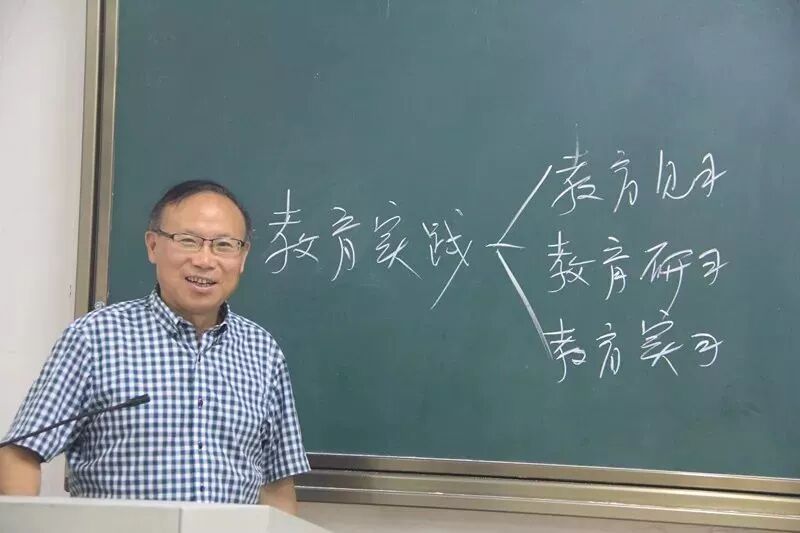 教育实践
教育见习
教育研习
教育实习